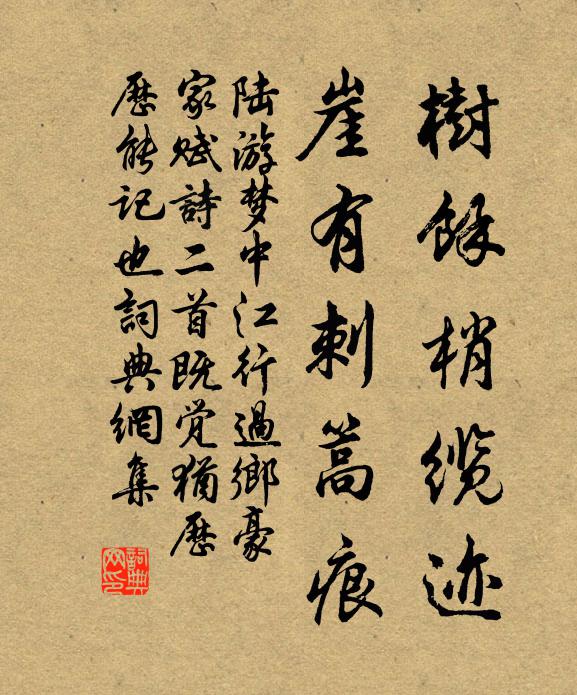 樹餘梢纜迹
崖有刺篙痕
陆游梦中江行過鄉豪
家赋詩二首既觉猶歷
歷能记也詞典網集
詞典网印